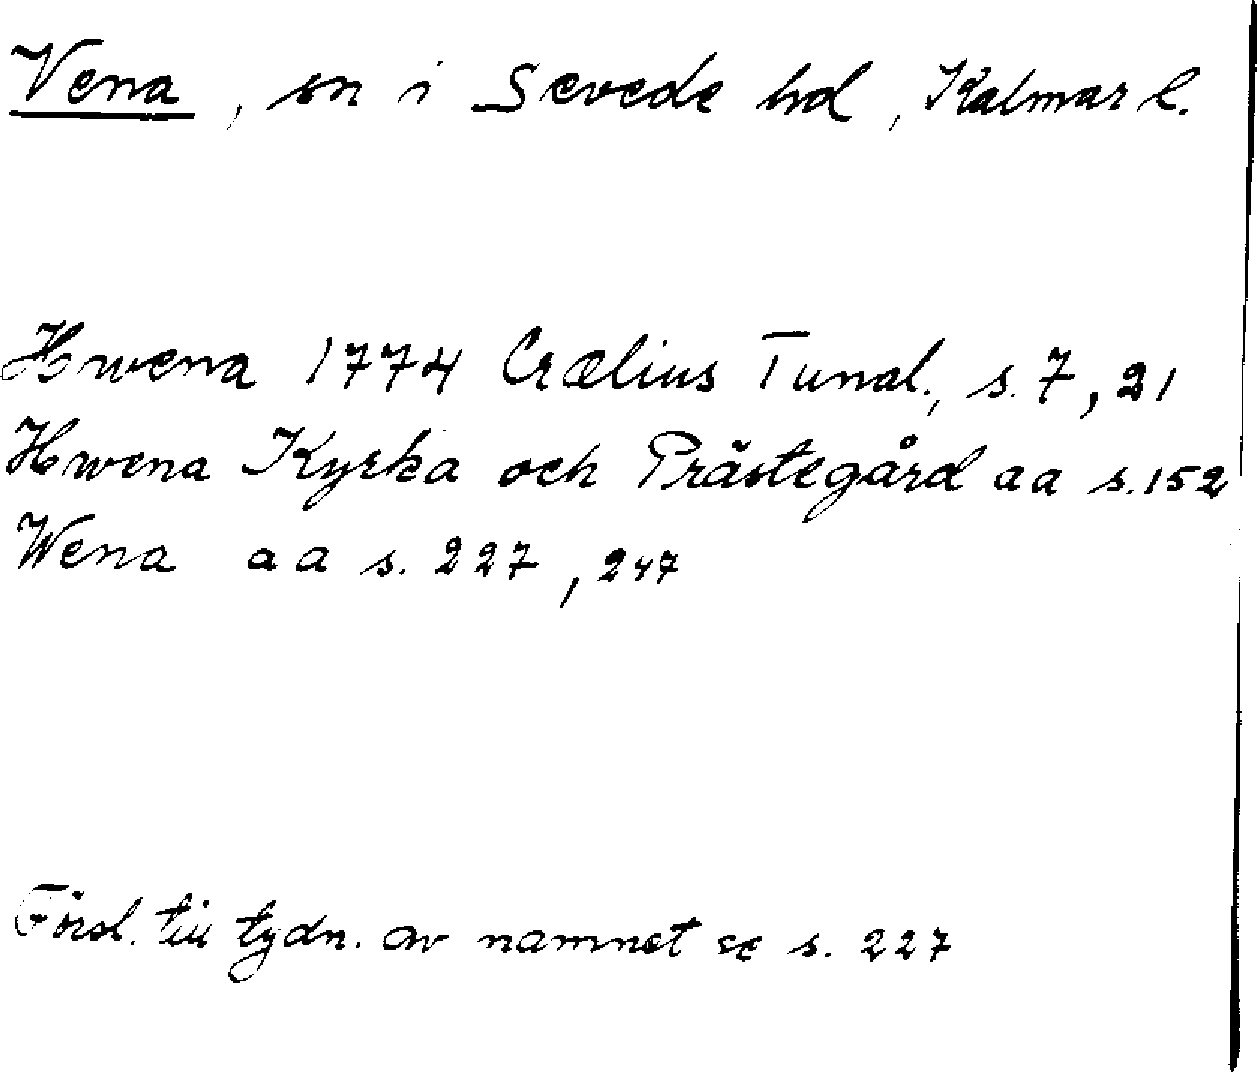 Vena, sn i Sevede hd, Kalmar l.
Hwena 1774 Crælius Tunal., s. 7, 21
Hwena Kyrka och Prästegård aa s. 152
Wena aa s. 227, 247
Försl. till tydn. av namnet se s. 227